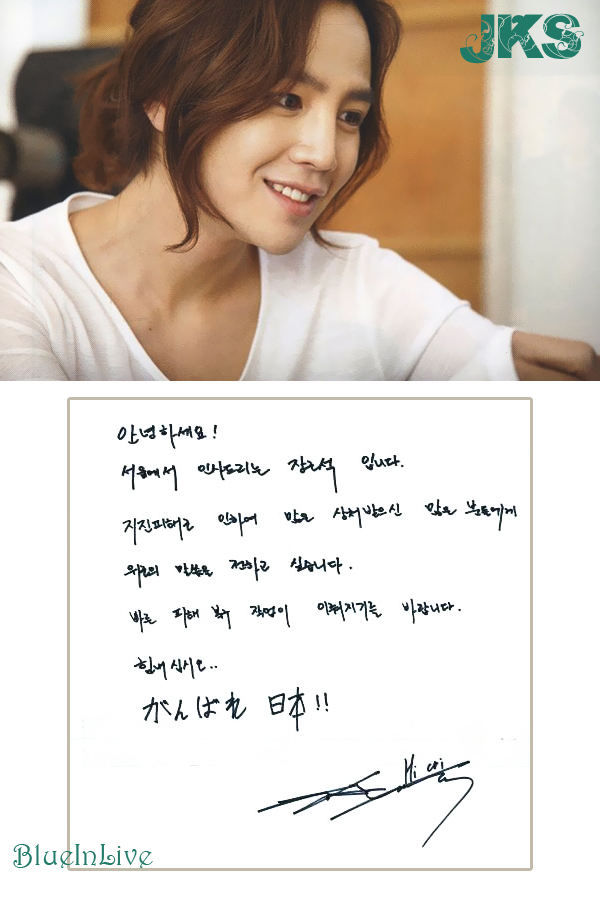 JKS
안녕하세요!
서울에서 인사드리는 장근석 입니다.
지진피해로 인하여 많은 상처받으신 많은 분들에게
위로의 말씀을 전하고 싶습니다.
빠른 피해 복구 작업이 이뤄지기를 바랍니다.
힘내십시오..
がんばれ 日本!!
BlueInLive